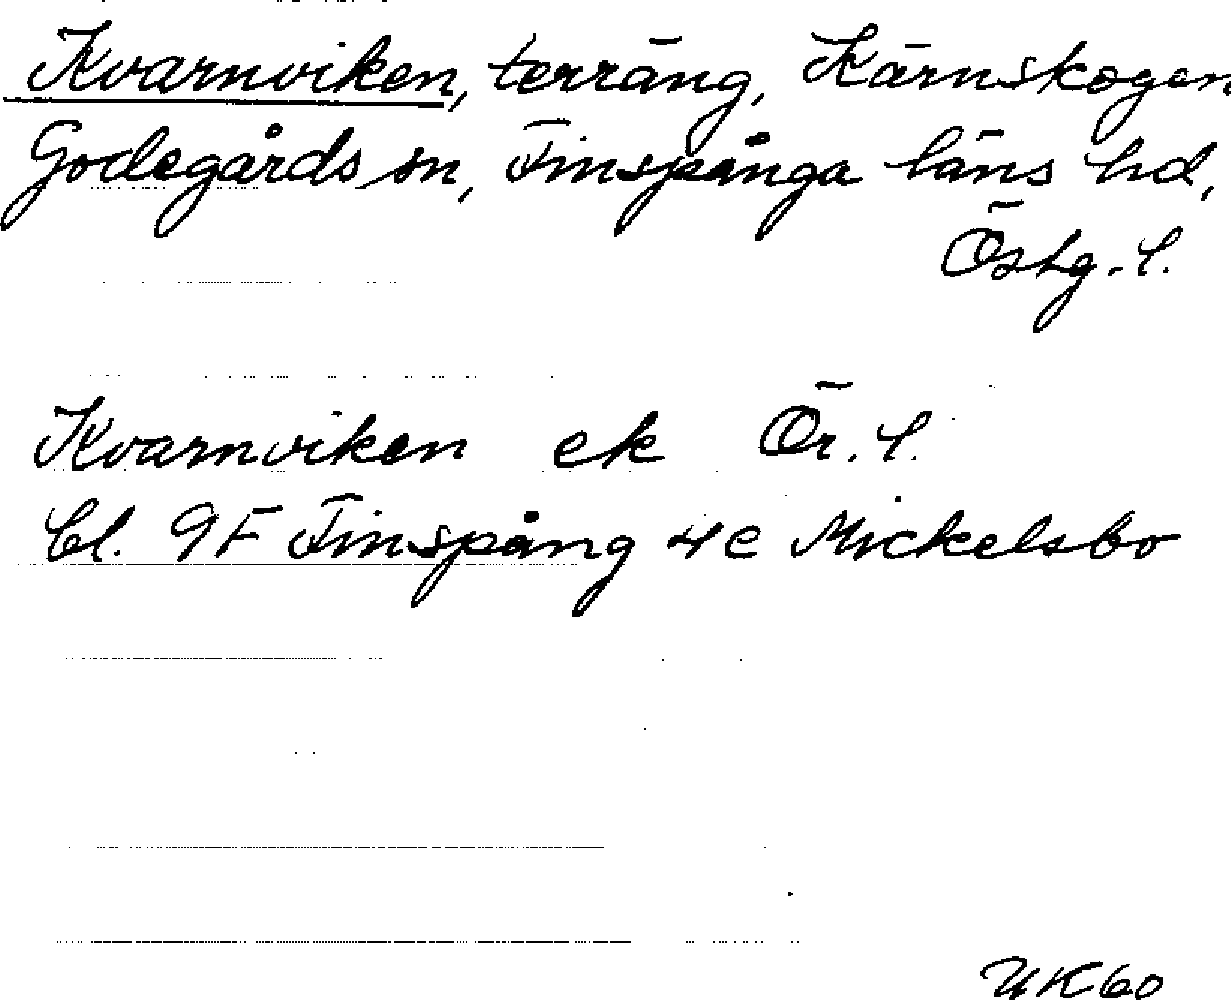 Kvarnviken, terräng, Kärnskogen
Godegårds sn, Finspånga läns hd,
Östg. l.
Kvarnviken ek Ör. l.
bl. 9F Finspång 4c Mickelsbo
UK60